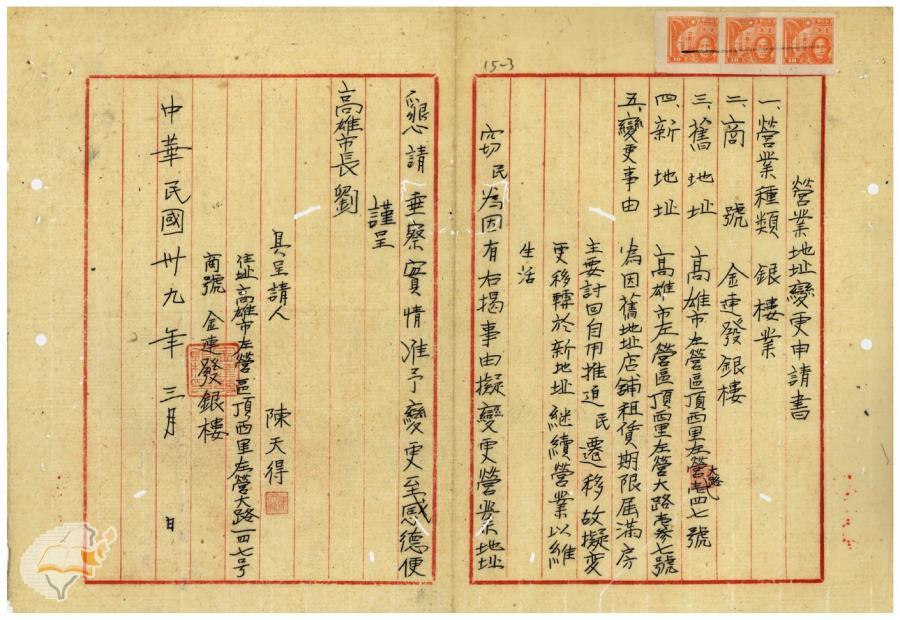 15-3
營業地址變更申請書
一、營業種類 銀樓業
二、商號 金建發銀樓
三、舊地址 高雄市左營區頂西里左營大路壱四七號
四、新地址 高雄市左營區頂西里左營大路壱參七號
五、變更事由 為因舊地址店鋪租賃期限屆滿房
主要討回自用推迫民遷移故擬變
更移轉於新地址繼續營業以維
生活
窃民為因有右揭事由擬變更營業地址
懇請 垂察實情准予變更至感德便
謹呈
高雄市長 劉
具呈請人 陳天得
住址 高雄市左營區頂西里左營大路一四七号
商號 金建發銀樓
中華民國卅九年 三月 日